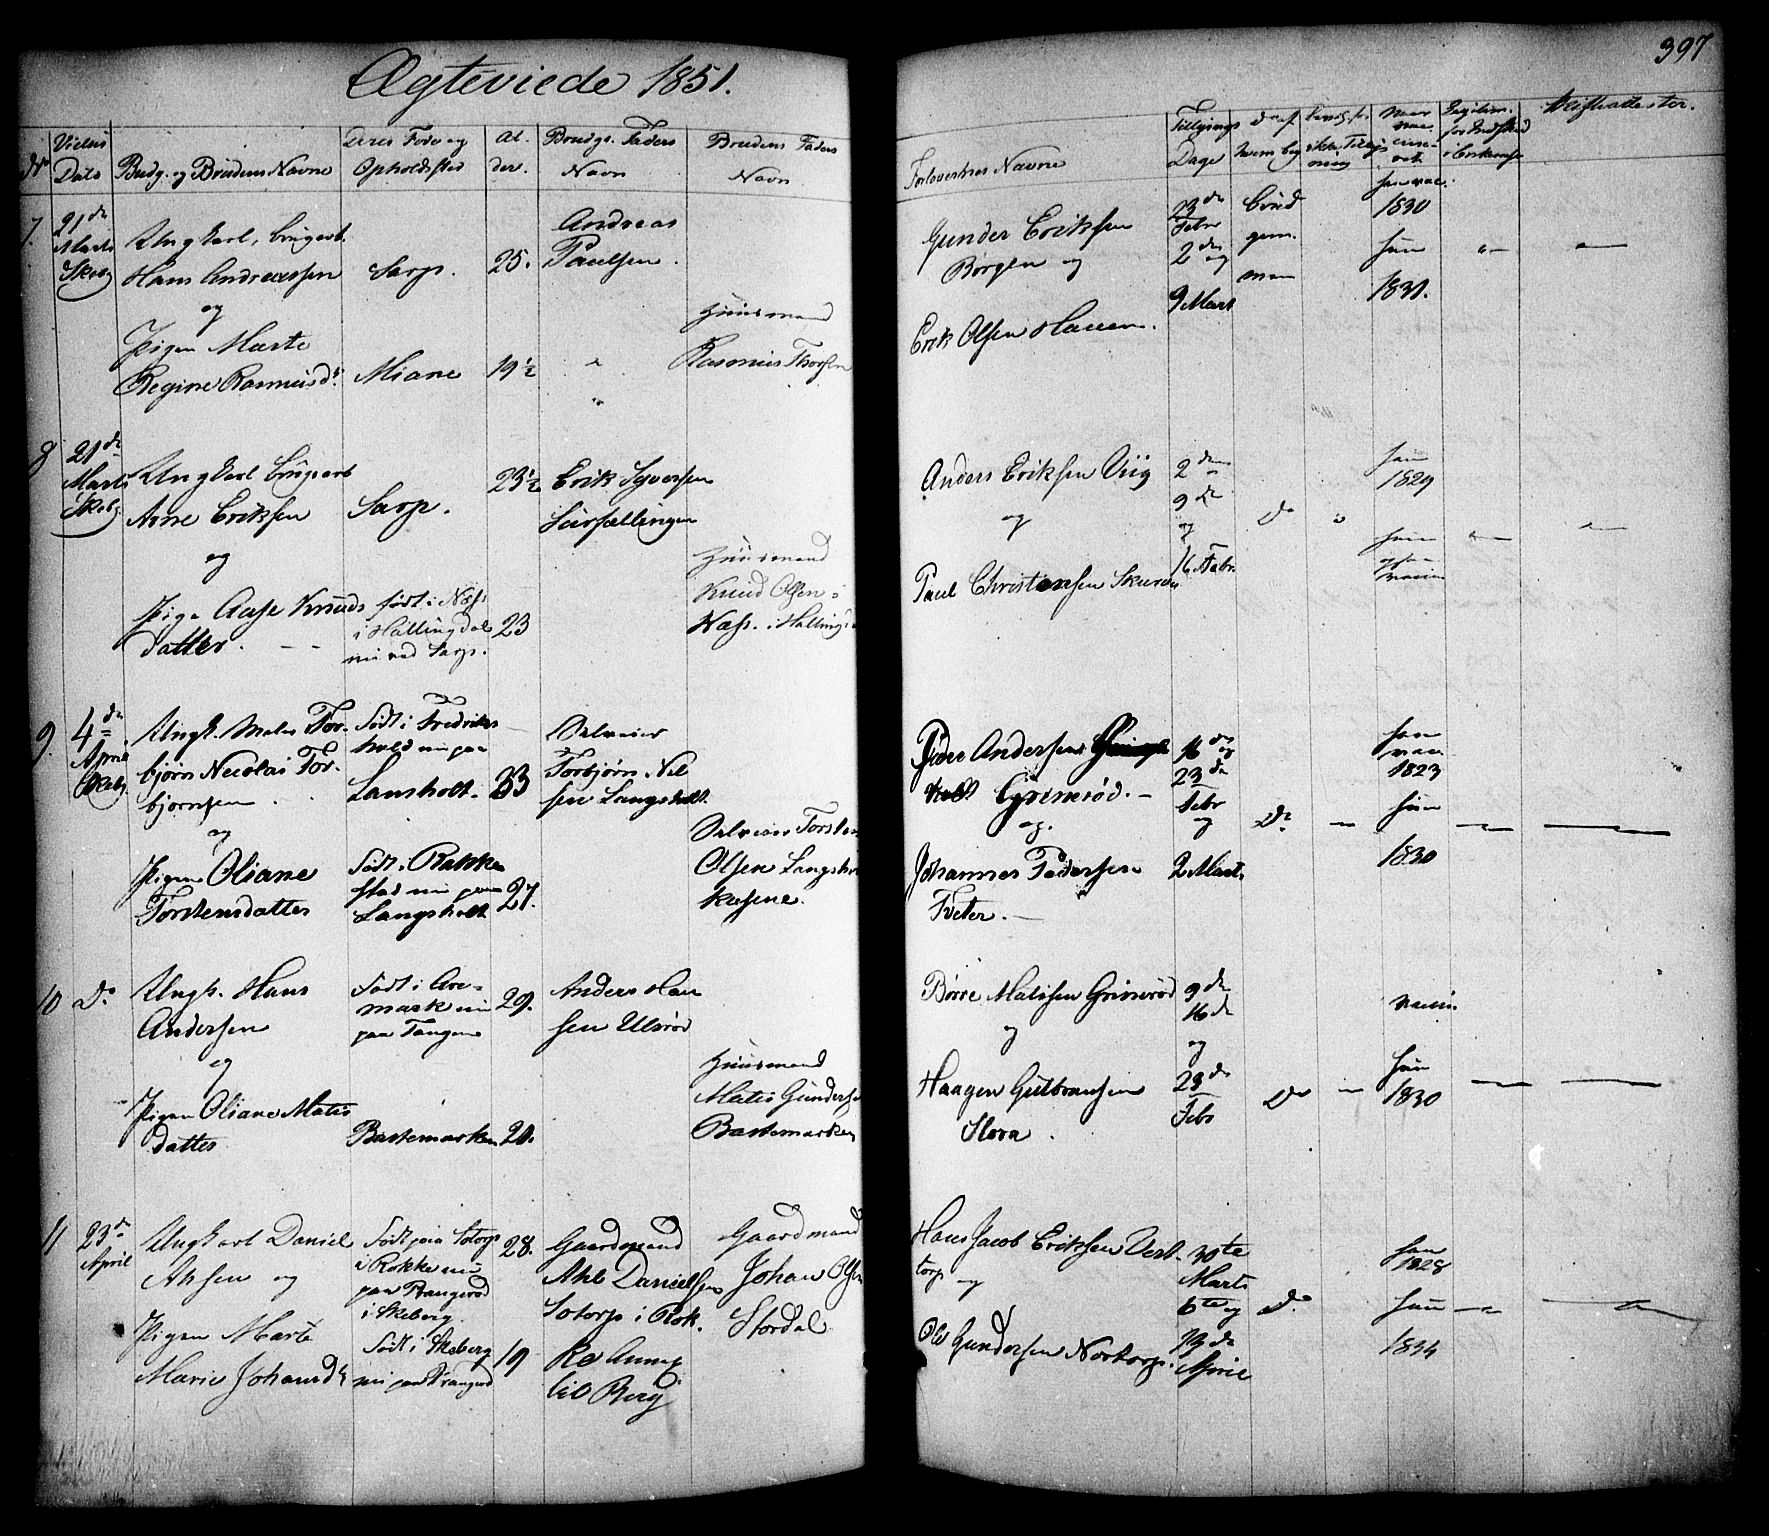 Ægteviede 1851.
397
No
Vielses Dato
Brudg. og Brudens Navne
Deres Føde og Opholdssted
Al der.
Brudgs. Faders Navn
Brudens Faders Navn
Forlovernes Navne
Tillysnings Dage
Attester.
7.
21de Marts Skeb.
Ungkarl,
Hans Andreassen
og
Pigen Marte
Regine Rasmusd.
Sarp.
Miane
25.
19 1/2
Andreas
Paulsen.
Huusmand
Rasmus Thorsen
Gunder Eriksen
Børgen og
Erik Olsen Hauen.
23de
Febr
2den og
9 Mart
Brud
gom
men
han vac.
1830
hun
1831.
8
21de
Marts
Skeb.
Ungkarl
Arne Eriksen
og
Pige Aase Knuds
datter.
Sarp.
født i Næs
i Hallingdal
nu ved Sarp.
23 1/2
23
Erik Syversen
Huusmand
Knud Olsen
Næss. i Halling
Anders Eriksen Viig
og
Paul Christensen
2den
9de
og
16 Febr.
Do
han
1829
hun
9.
4de
April
Skeb.
Ungk. Tor-
bjørn Nicolai Tor-
bjørnsen
og
Pigen Oliane
Torstensdatter
Født i Fredriks
hald nu paa
Lansholt.
Født i Rakke
stad nu paa
Langsholt
23
27.
Selveier
Torbjørn Nil
sen Langsholt.
Selveier Torsten
Olsen Langshol
Peder Andersen
Grinerød.
og.
Johannes Pedersen
Tveter.
16de og
23de
Febr
og
2 Mart.
Do
han
vac.
1823
hun
1830
10
Do
Ungk. Hans
Andersen
og
Pigen Oliane Matis
datter
Født i Are-
mark nu
paa Tangen
Bastemarken
29.
20.
Anders Han
sen Ulsrød
Huusmand
Matis Gunders
Bastemarken
Børre Matisen Grinerød
og
Haagen Gulbransen
Slora.
9de
16de
og
23de
Febr
Do
vacci.
hun
1830
11
23de
April
Ungkarl Daniel
Aksen og
Pigen Marte
Marie Johansd.
Født paa Sotorp
i Rokke nu
paa Prangerød
i Skeberg.
Født i Skeberg
nu paa Prangerød
28.
19
Gaardmand
Axl Danielsen
Sotorp i Rok.
ke Annex
til Berg
Gaardmand
Johan Olsen
Stordal
Hans Jacob Eriksen Vest-
torp og
Ole Gundersen Nortorp.
30te
Marts
6te og
13de
April
Do
han
1828
hun
1834